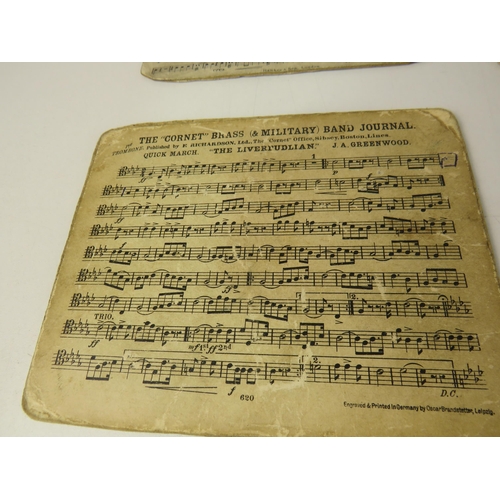 THE "CORNET" BRASS (& MILITARY) BAND JOURNAL.
TROMBONE. Published by F. RICHARDSON, Ltd., The "Cornet" Office, Sibsey, Boston, Lincs.
QUICK MARCH. "THE LIVERPUDLIAN." J. A. GREENWOOD.
1
ff
p
ff
f
ff
12.
p
TRIO.
ff
mf 1st ff 2nd
2.
f
D.C.
620
Engraved & Printed in Germany by Oscar Brandstetter, Leipzig.